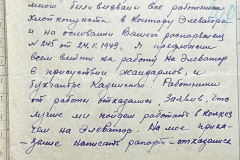 мною были вызваны все работники
Хлопкопункта в контору Элеватора
и на основании Вашего распоряжения
№ 245 от 24.11.1943г. Я предложил
всем выйти на работу на Элеватор
в присутствии жандармов, и
бухгалтера Кадинского. Работники
от работы отказались. Заявив, что
лучше мы пойдем работать в колхоз
чем на Элеватор. На мое прика-
зание написать рапорт - отказались